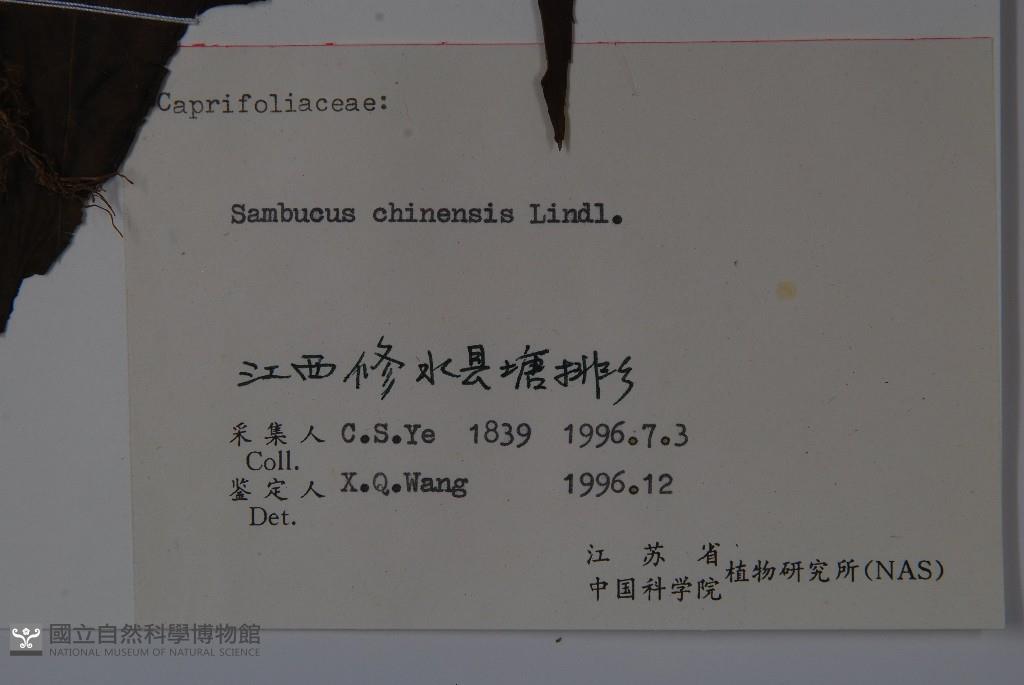 Caprifoliaceae:
Sambucus chinensis Lindl.
江西修水县塘排乡
采集人 C.S.Ye 1839 1996.7.3
Coll.
鉴定人 X.Q.Wang 1996.12
Det.
江苏省
中国科学院植物研究所(NAS)
國立自然科學博物館
NATIONAL MUSEUM OF NATURAL SCIENCE